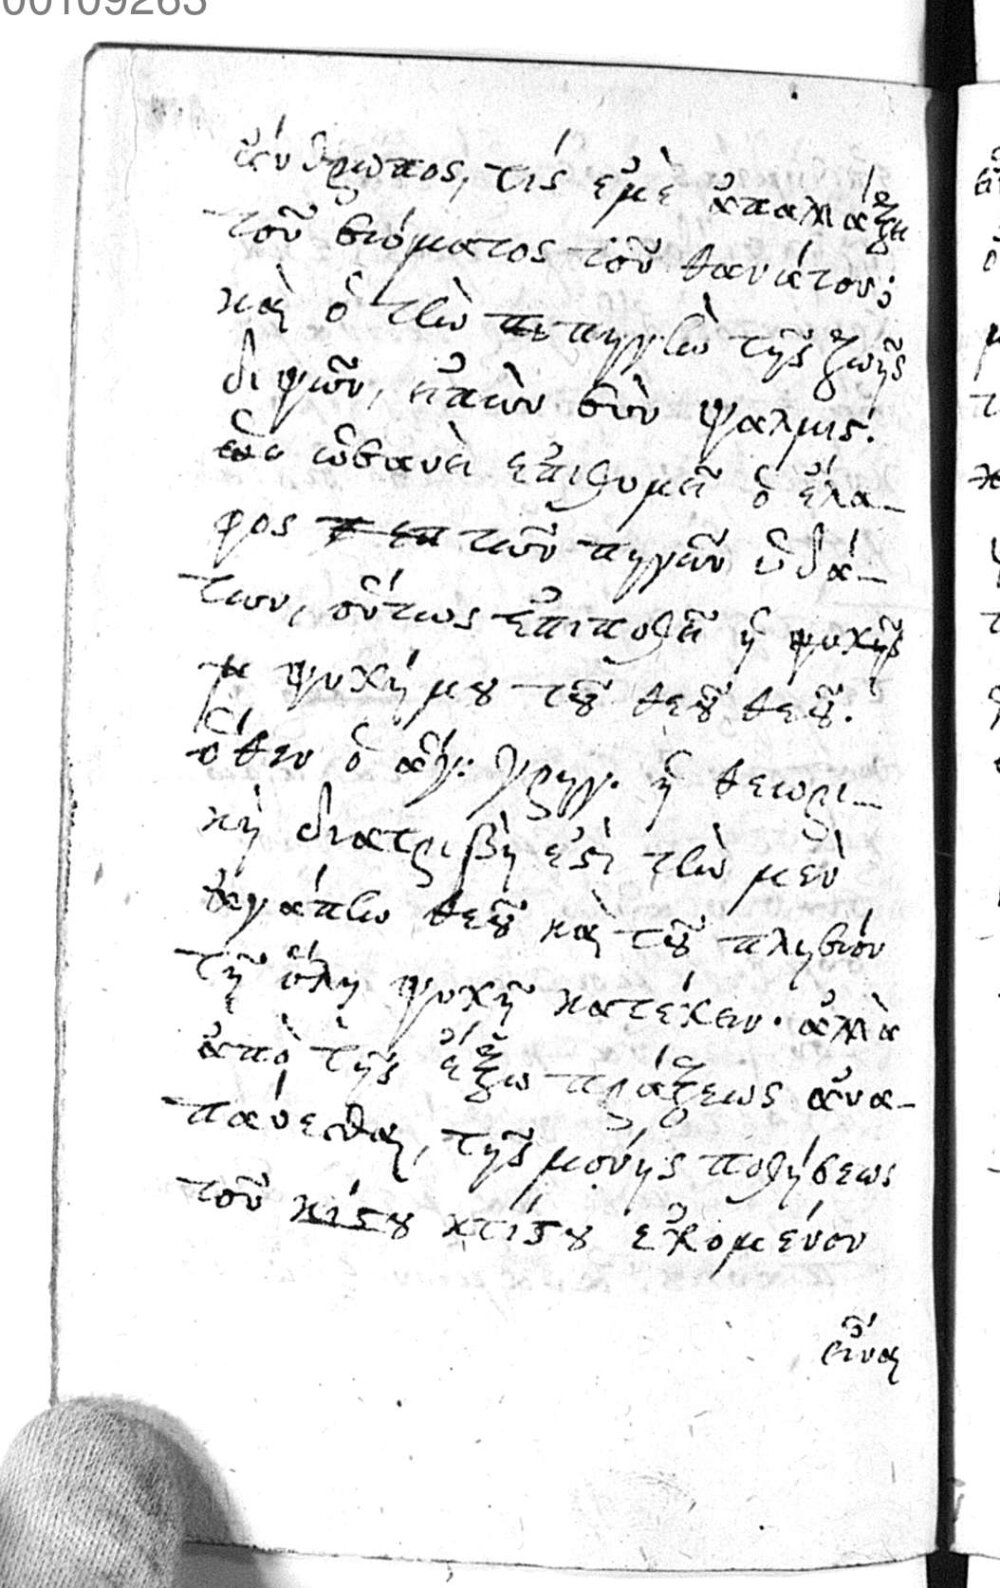 00109263
ἄνθρωπος, τίς ἐμὲ ἀπαλλάξει
τοῦ σώματος τοῦ θανάτου;
καὶ ὁ τὴν πηγὴν τῆς ζωῆς
διψῶν, εἰπὼν σὺν ψαλμῳ.
ὡσανεὶ ἐπιθυμεῖ ὁ ἔλα-
φος τῶν πηγῶν ὑδά-
των, οὕτως ἐπιποθεῖ ἡ ψυχῆς
ψυχή μου τοῦ θεοῦ θεοῦ.
ὅθεν ὁ ἅγ: γρηγ. ἡ θεωρι-
κὴ διατριβὴ ἐστὶ τὴν μὲν
ἀγάπην θεοῦ καὶ τοῦ πλησίον
τῇ ὅλῃ ψυχῇ κατέχειν· ἀλλὰ
ἀπὸ τῆς ἔξω πράξεως ἀνα-
παύεσθαι, τῆς μόνης ποθήσεως
τοῦ κίστου κτίστου ἐχομένον
εἶναι